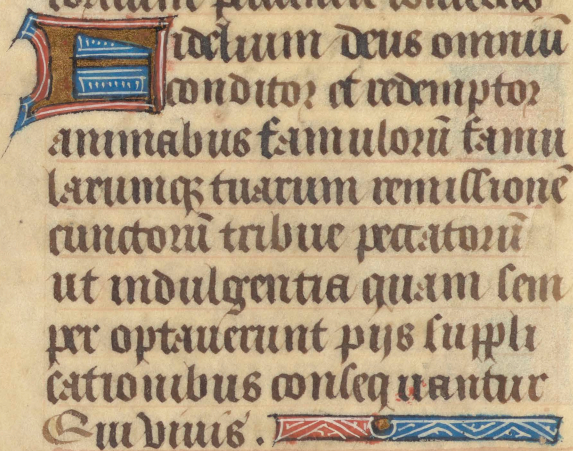 Fidelium deus omniū
conditor et redemptor
animabus famulorū famu
larumqꝫ tuarum remissionē
cunctorū tribue peccatorū
ut indulgentia quam sem
per optauerunt pijs suppli
cationibus consequantur
Qui viuis.